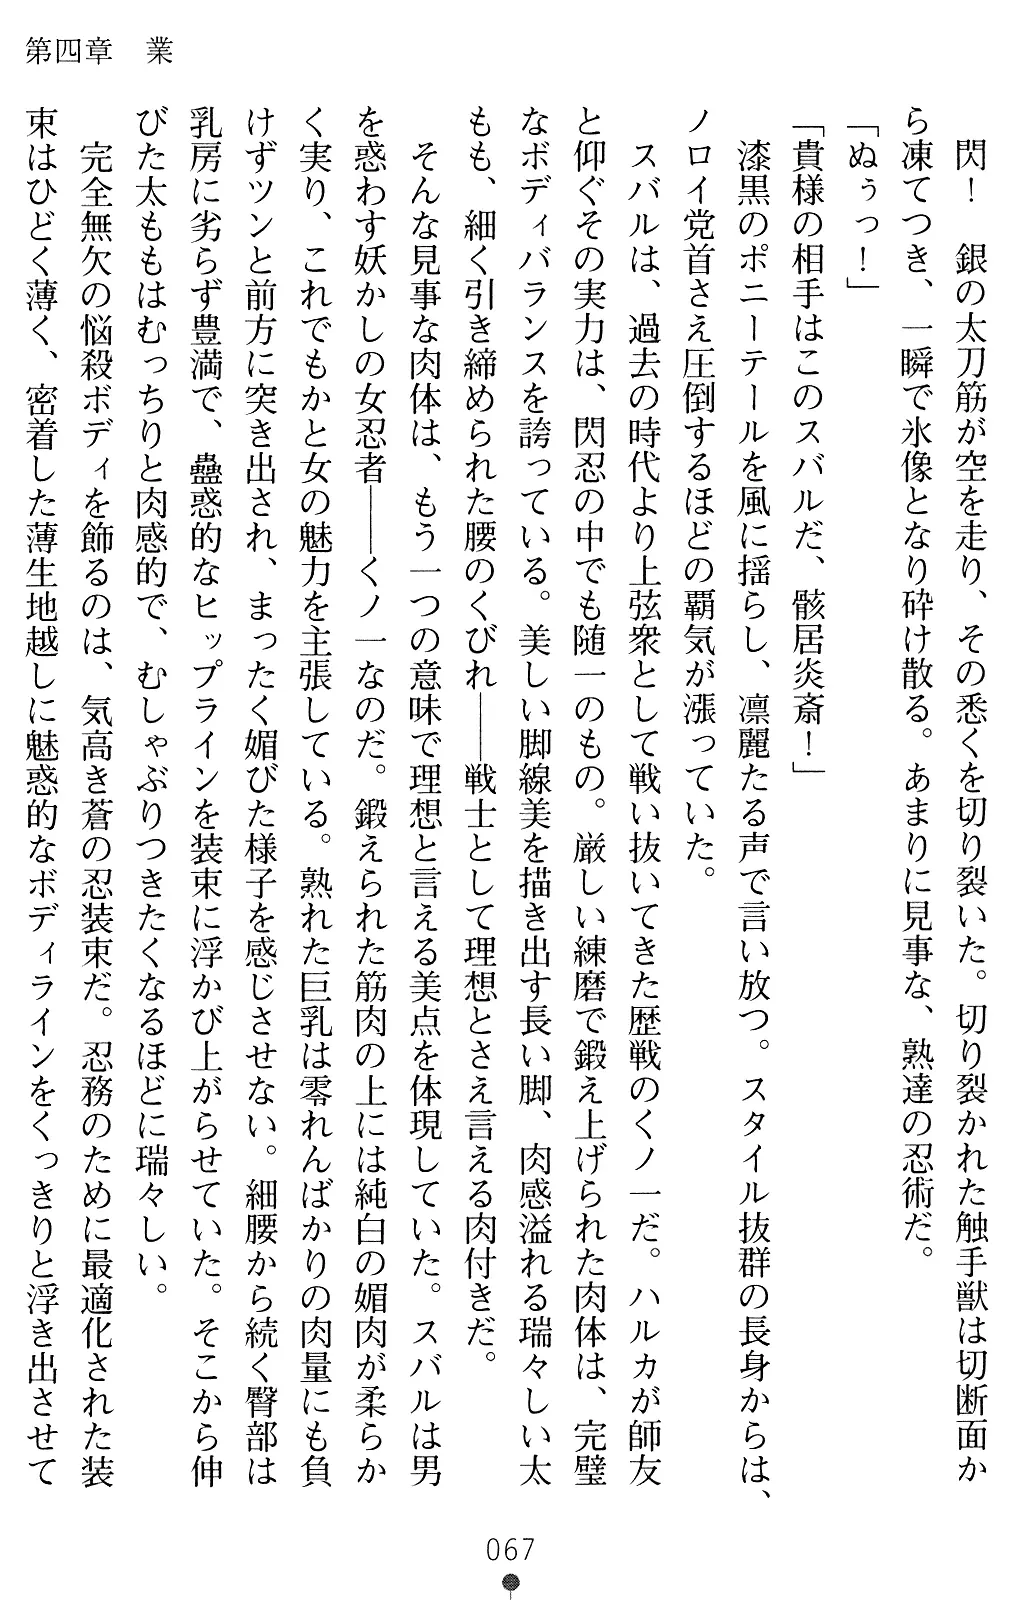 第四章　業
　閃！　銀の太刀筋が空を走り、その悉くを切り裂いた。切り裂かれた触手獣は切断面か
ら凍てつき、一瞬で氷像となり砕け散る。あまりに見事な、熟達の忍術だ。
「ぬぅっ！」
「貴様の相手はこのスバルだ、骸居炎斎！」
　漆黒のポニーテールを風に揺らし、凛麗たる声で言い放つ。スタイル抜群の長身からは、
ノロイ党首さえ圧倒するほどの覇気が漲っていた。
　スバルは、過去の時代より上弦衆として戦い抜いてきた歴戦のくノ一だ。ハルカが師友
と仰ぐその実力は、閃忍の中でも随一のもの。厳しい練磨で鍛え上げられた肉体は、完璧
なボディバランスを誇っている。美しい脚線美を描き出す長い脚、肉感溢れる瑞々しい太
もも、細く引き締められた腰のくびれ――戦士として理想とさえ言える肉付きだ。
　そんな見事な肉体は、もう一つの意味で理想と言える美点を体現していた。スバルは男
を惑わす妖かしの女忍者――くノ一なのだ。鍛えられた筋肉の上には純白の媚肉が柔らか
く実り、これでもかと女の魅力を主張している。熟れた巨乳は零れんばかりの肉量にも負
けずツンと前方に突き出され、まったく媚びた様子を感じさせない。細腰から続く臀部は
乳房に劣らず豊満で、蠱惑的なヒップラインを装束に浮かび上がらせていた。そこから伸
びた太ももはむっちりと肉感的で、むしゃぶりつきたくなるほどに瑞々しい。
　完全無欠の悩殺ボディを飾るのは、気高き蒼の忍装束だ。忍務のために最適化された装
束はひどく薄く、密着した薄生地越しに魅惑的なボディラインをくっきりと浮き出させて
067